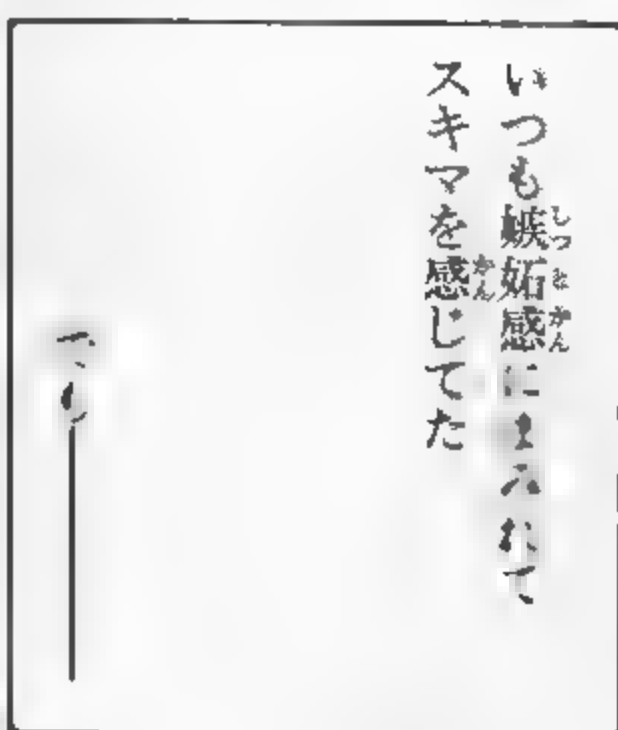 いつも嫉妬感にまみれて
スキマを感じてた
でも――